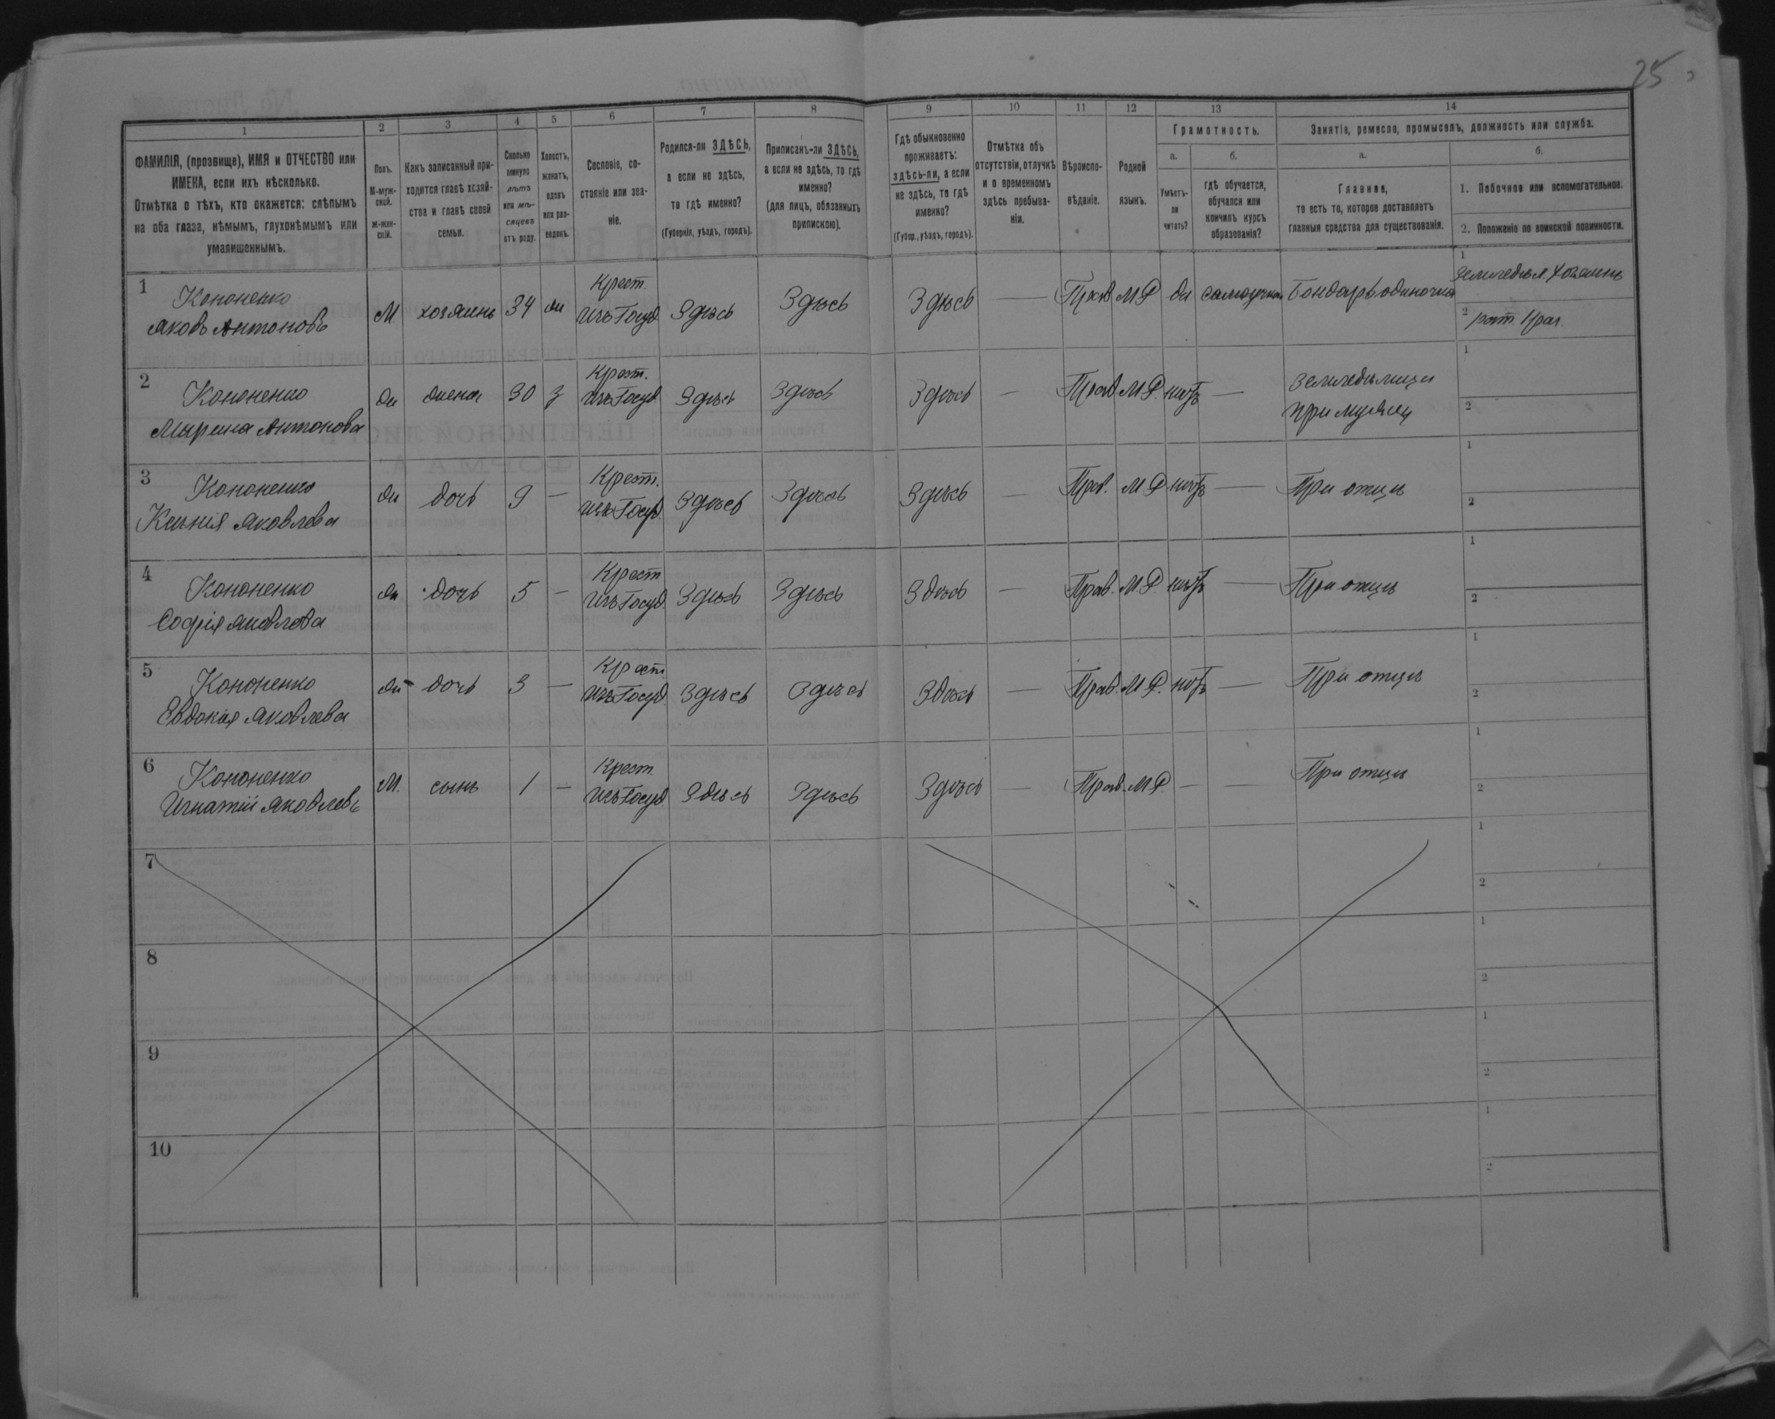 25
1 2 3 4 5 6 7 8 9 10 11 12 13 14
ФАМИЛІЯ, (прозвище), ИМЯ и ОТЧЕСТВО или
ИМЕНА, если ихъ нѣсколько.
Отмѣтка о тѣхъ, кто окажется: слѣпымъ
на оба глаза, нѣмымъ, глухонѣмымъ или
умалишеннымъ.
Полъ.
М-муж-
ской.
Ж-жен-
скій.
Какъ записанный при-
ходится главѣ хозяй-
ства и главѣ своей
семьи.
Сколько
минуло
лѣтъ
или мѣ-
сяцевъ
отъ роду.
Холостъ,
женатъ,
вдовъ
или раз-
веденъ.
Сословіе, со-
стояніе или зва-
ніе.
Родился-ли ЗДѢСЬ,
а если не здѣсь,
то гдѣ именно?
(Губернія, уѣздъ, городъ).
Приписанъ-ли ЗДѢСЬ,
а если не здѣсь, то гдѣ
именно?
(для лицъ, обязанныхъ
припискою).
Гдѣ обыкновенно
проживаетъ:
здѣсь-ли, а если
не здѣсь, то гдѣ
именно?
(Губер., уѣздъ, городъ).
Отмѣтка объ
отсутствіи, отлучкѣ
и о временномъ
здѣсь пребыва-
ніи.
Вѣроиспо-
вѣданіе.
Родной
языкъ.
Грамотность.
а.
Умѣетъ-
ли
читать?
б.
гдѣ обучается,
обучался или
кончилъ курсъ
образованія?
Занятіе, ремесло, промыселъ, должность или служба.
а.
Главное,
то есть то, которое доставляетъ
главныя средства для существованія.
б.
1. Побочное или вспомогательное.
2. Положеніе по воинской повинности.
1 Кононенко
Яковъ Антоновъ
М хозяинъ 34 ж Крест.
изъ Госуд. Здѣсь Здѣсь Здѣсь — Прав. М.Р. да самоучка Бондарь одиночка
1 земледѣл. хозяинъ
2
2 Кононенко
Марина Антонова
ж жена 30 з Крест.
изъ Госуд. Здѣсь Здѣсь Здѣсь — Прав. М.Р. нѣтъ — земледѣлица
при мужѣ
1
2
3 Кононенко
Ксенія Яковлева
ж дочь 9 — Крест.
изъ Госуд. Здѣсь Здѣсь Здѣсь — Прав. М.Р. нѣтъ — При отцѣ
1
2
4 Кононенко
Софія Яковлева
ж дочь 5 — Крест.
изъ Госуд. Здѣсь Здѣсь Здѣсь — Прав. М.Р. нѣтъ — При отцѣ
1
2
5 Кононенко
Евдокія Яковлева
ж дочь 3 — Крест.
изъ Госуд. Здѣсь Здѣсь Здѣсь — Прав. М.Р. нѣтъ — При отцѣ
1
2
6 Кононенко
Игнатій Яковлевъ
М. сынъ 1 — Крест.
изъ Госуд. Здѣсь Здѣсь Здѣсь — Прав. М.Р. — — При отцѣ
1
2
7
1
2
8
1
2
9
1
2
10
1
2